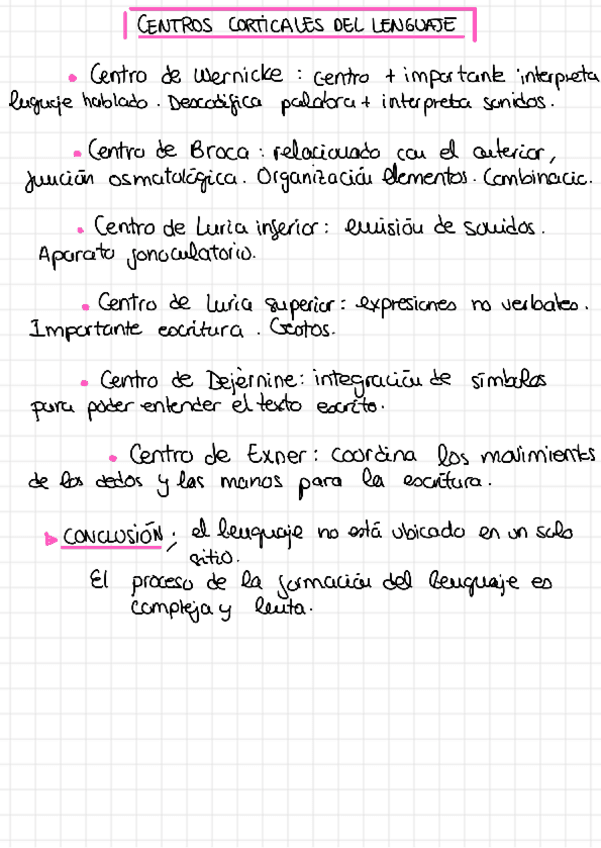 CENTROS CORTICALES DEL LENGUAJE
• Centro de Wernicke : centro + importante interpreta
lenguaje hablado. Descodifica palabra + interpreta sonidos.
• Centro de Broca : relacionado con el anterior,
función osmatológica. Organización elementos. Combinacic.
• Centro de Luria inferior : emisión de sonidos.
Aparato fonoculatorio.
• Centro de Luria superior : expresiones no verbales.
Importante escritura. Gestos.
• Centro de Dejernine: integración de símbolos
para poder entender el texto escrito.
• Centro de Exner : coordina los movimients
de los dedos y las manos para la escritura.
CONCLUSIÓN ; el lenguaje no está ubicado en un solo
sitio.
El proceso de la formación del lenguaje es
compleja y lenta.